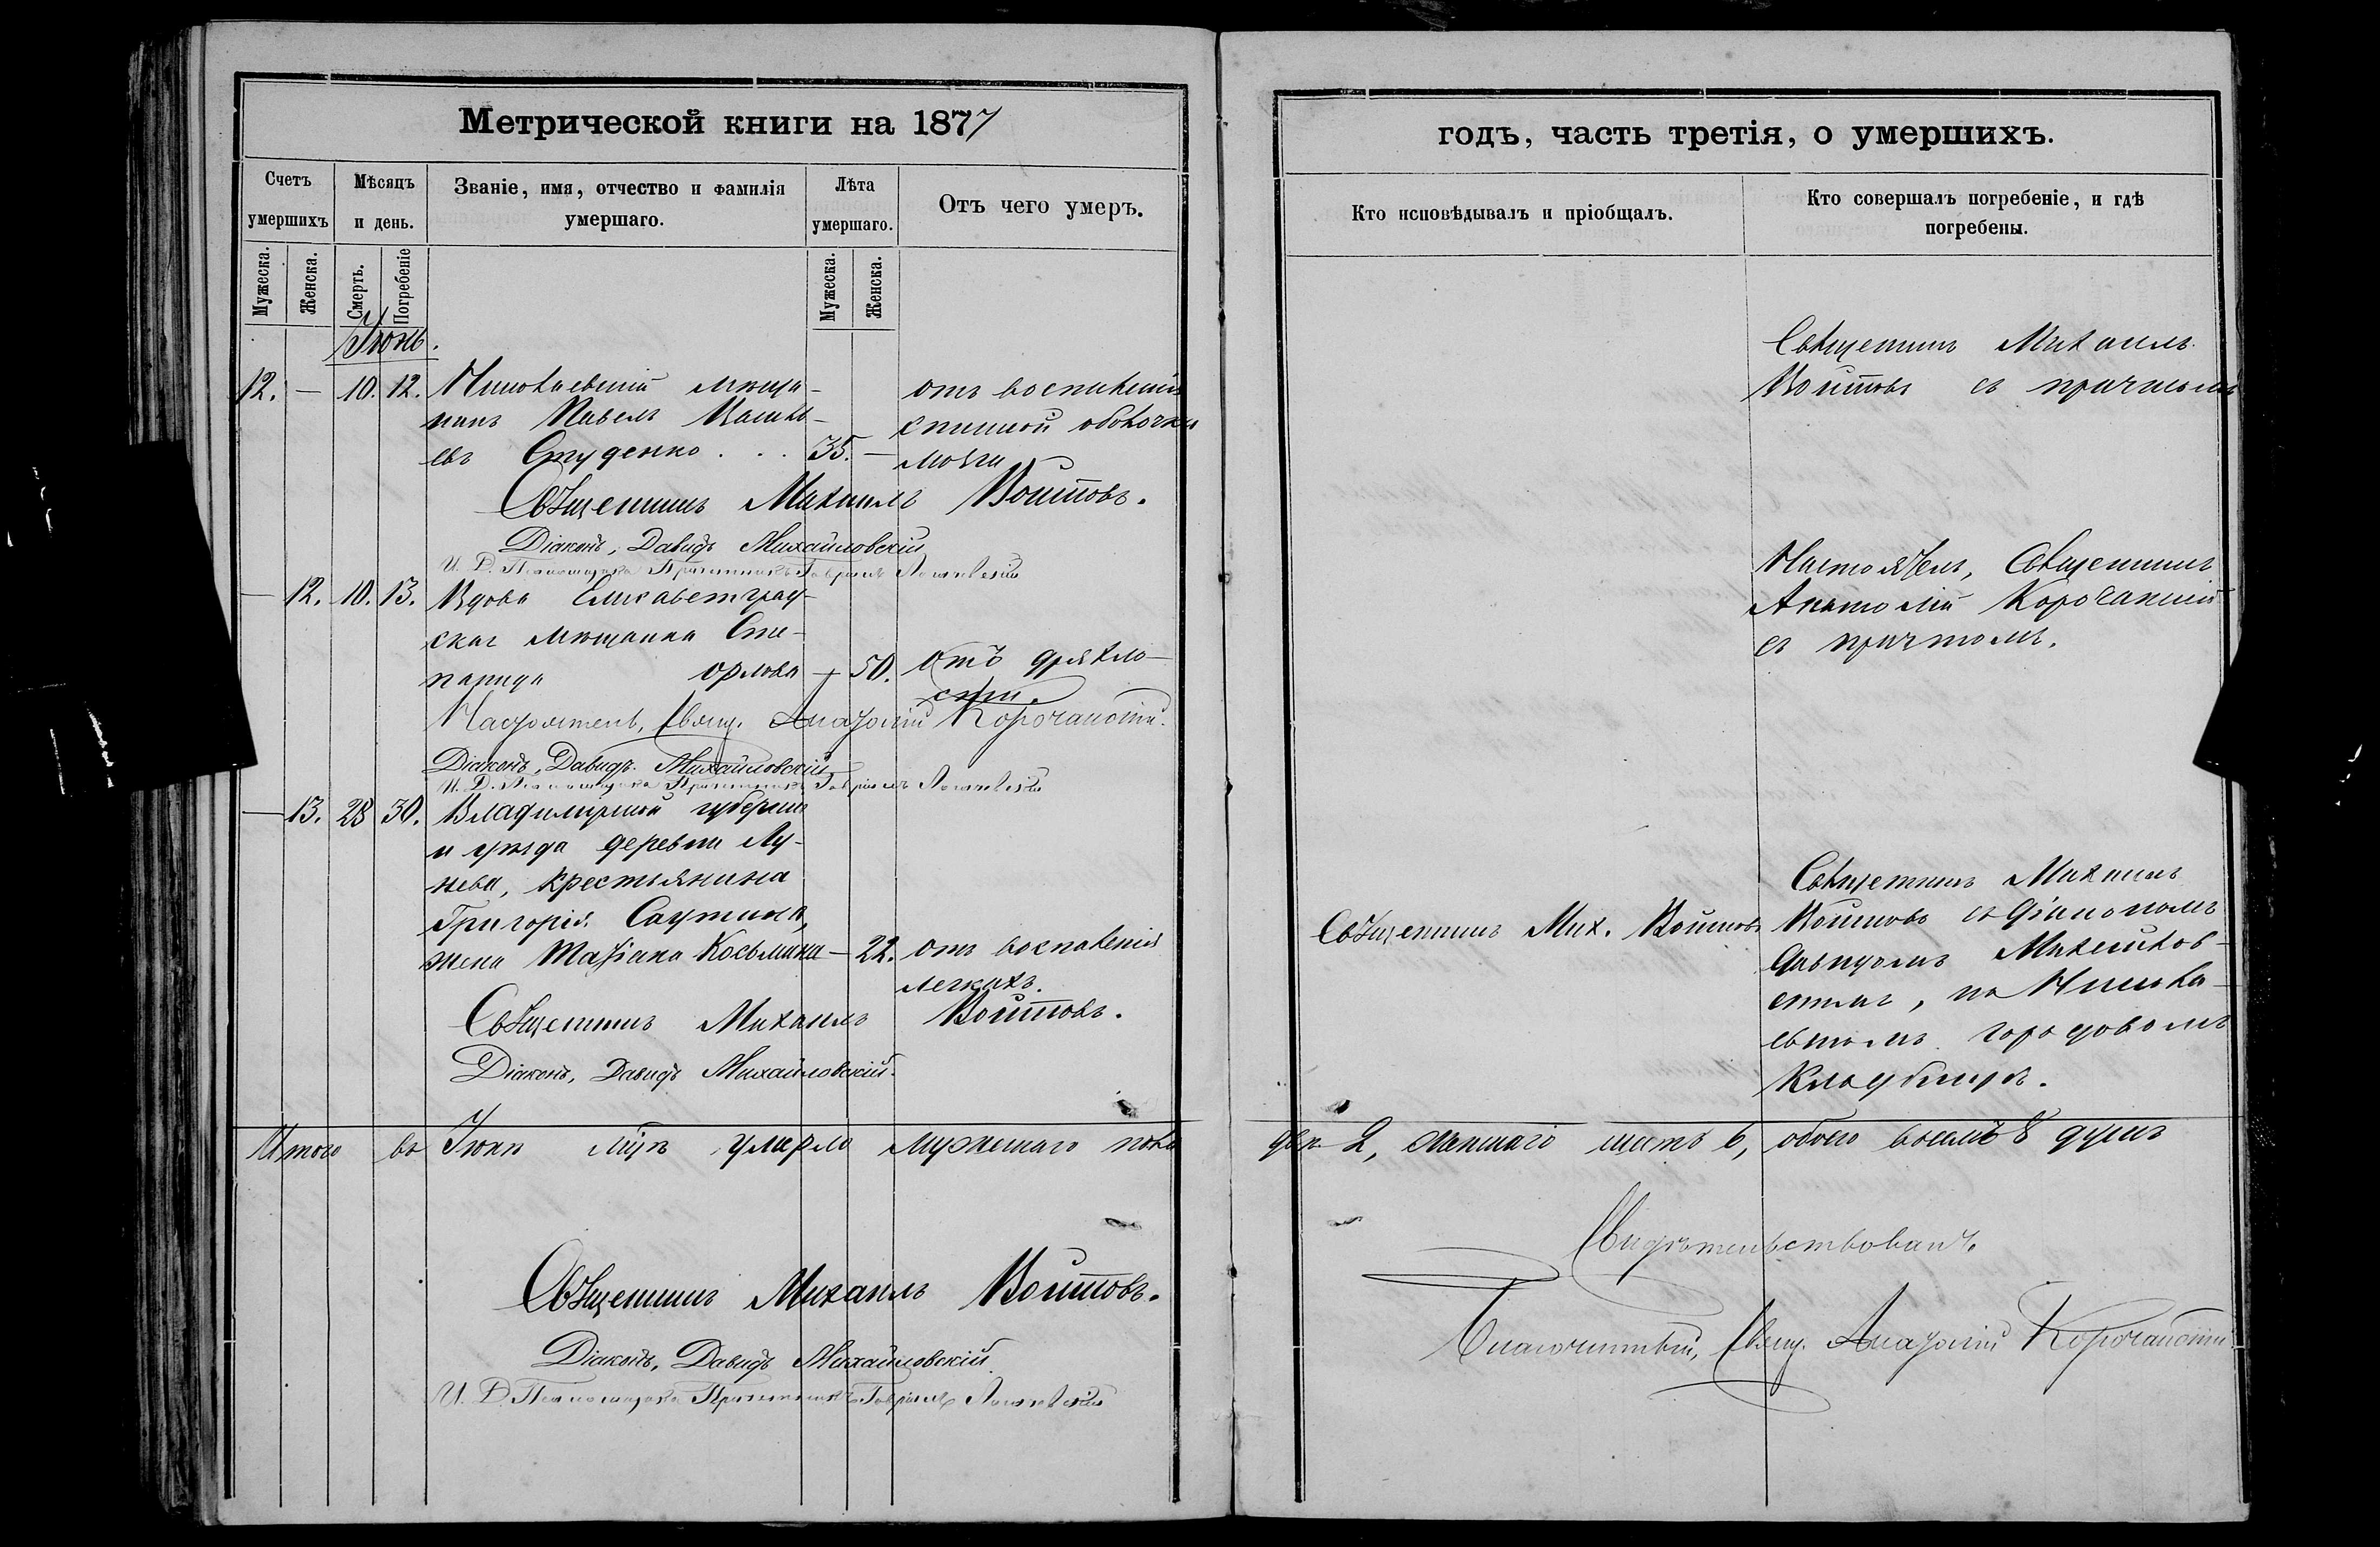 Метрической книги на 1877
Счетъ умершихъ
Мѣсяцъ и день.
Званіе, имя, отчество и фамилія умершаго.
Лѣта умершаго.
Отъ чего умеръ.
Мужеска.
Женска.
Смерть.
Погребеніе
Мужеска.
Женска.
Іюнь.
12. — 10. 12. Николаевскій мѣща-
нинъ Павелъ
евъ Студенко . . . 35. —
отъ воспаленія
спинной оболочки
мозга
Священникъ Михаилъ Войтовъ.
Діаконъ, Давидъ Михайловскій
И. Д. Псаломщика Причетникъ Гавріилъ
— 12. 10. 13. Вдова Елисаветград-
ская мѣщанка Сте-
панида Орлова — 50. отъ дряхло-
сти.
Настоятель, Свящ. Анатолій Корочанскій.
Діаконъ, Давидъ Михайловскій
И. Д. Псаломщика Причетникъ Гавріилъ
— 13. 28 30. Владимірской губерніи
и уѣзда деревни Лу-
нева, крестьянина
Григорія Саутина,
жена Татіана Косьмина — 22. отъ воспаленія
легкихъ.
Священникъ Михаилъ Войтовъ.
Діаконъ, Давидъ Михайловскій.
Итого въ Іюнѣ м͠цѣ умерло мужескаго пола
Священникъ Михаилъ Войтовъ.
Діаконъ, Давидъ Михайловскій
И. Д. Псаломщика Причетникъ Гавріилъ
годъ, часть третія, о умершихъ.
Кто исповѣдывалъ и пріобщалъ.
Кто совершалъ погребеніе, и гдѣ погребены.
Священникъ Михаилъ
Войтовъ съ причтомъ
Настоятель, Священникъ
Анатолій Корочанскій
съ причтомъ.
Священникъ Мих. Войтовъ
Священникъ Михаилъ
Войтовъ съ діакономъ
Давидомъ Михайлов-
скимъ, на Никола-
евскомъ городовомъ
кладбищѣ.
два 2, женскаго шесть 6, обоего восемь 8 душъ
Свидѣтельствовалъ.
Благочинный, Свящ. Анатолій Корочанскій